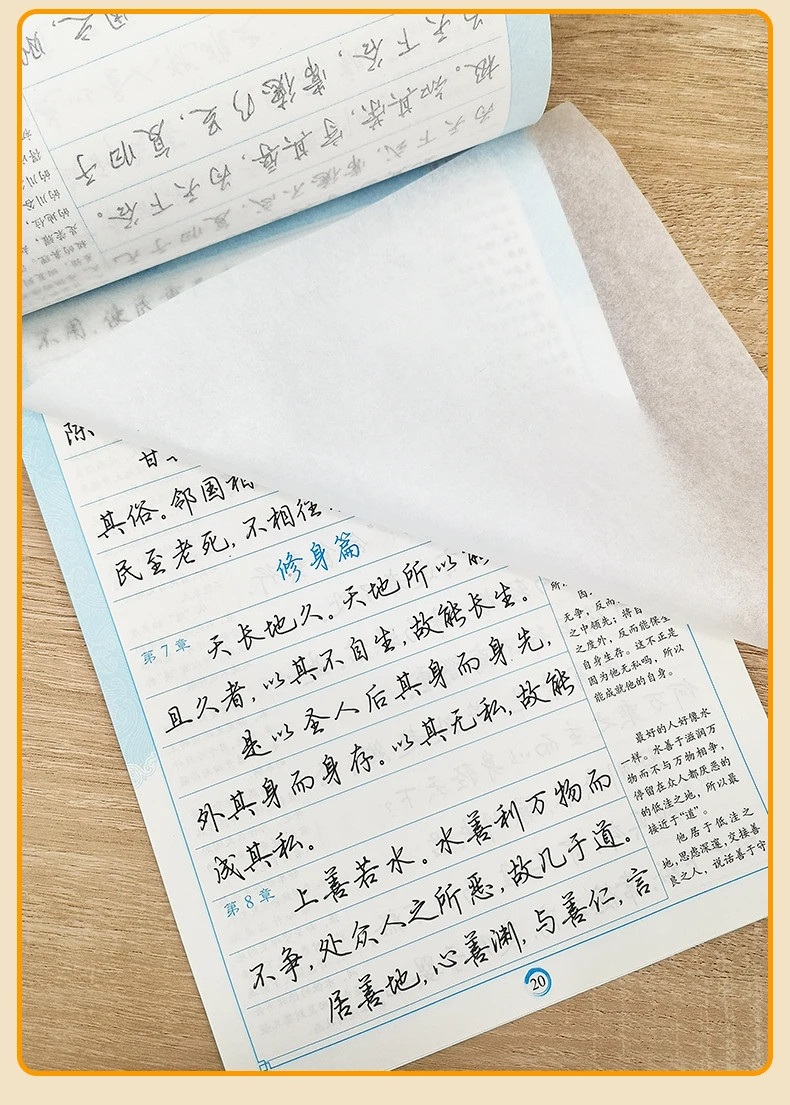 为天下谷，常德乃足，复归于
极。知其荣，守其辱，为天下谷。
为天下式，常德不忒，复归于无
陈
甘
其俗。邻国相
民至老死，不相往
修身篇
第7章 天长地久。天地所以能
且久者，以其不自生，故能长生。
是以圣人后其身而身先，
外其身而身存。以其无私，故能
成其私。
第8章 上善若水。水善利万物而
不争，处众人之所恶，故几于道。
居善地，心善渊，与善仁，言
所
因
无争，反而
之中领先；将自
之度外，反而能保全
自身生存。这不正是
因为他无私吗，所以
能成就他的自身。
最好的人好像水
一样。水善于滋润万
物而不与万物相争，
停留在众人都厌恶的
的低洼之地，所以最
接近于“道”。
他居于低洼之
地，思虑深邃，交接善
良之人，说话善于守
20